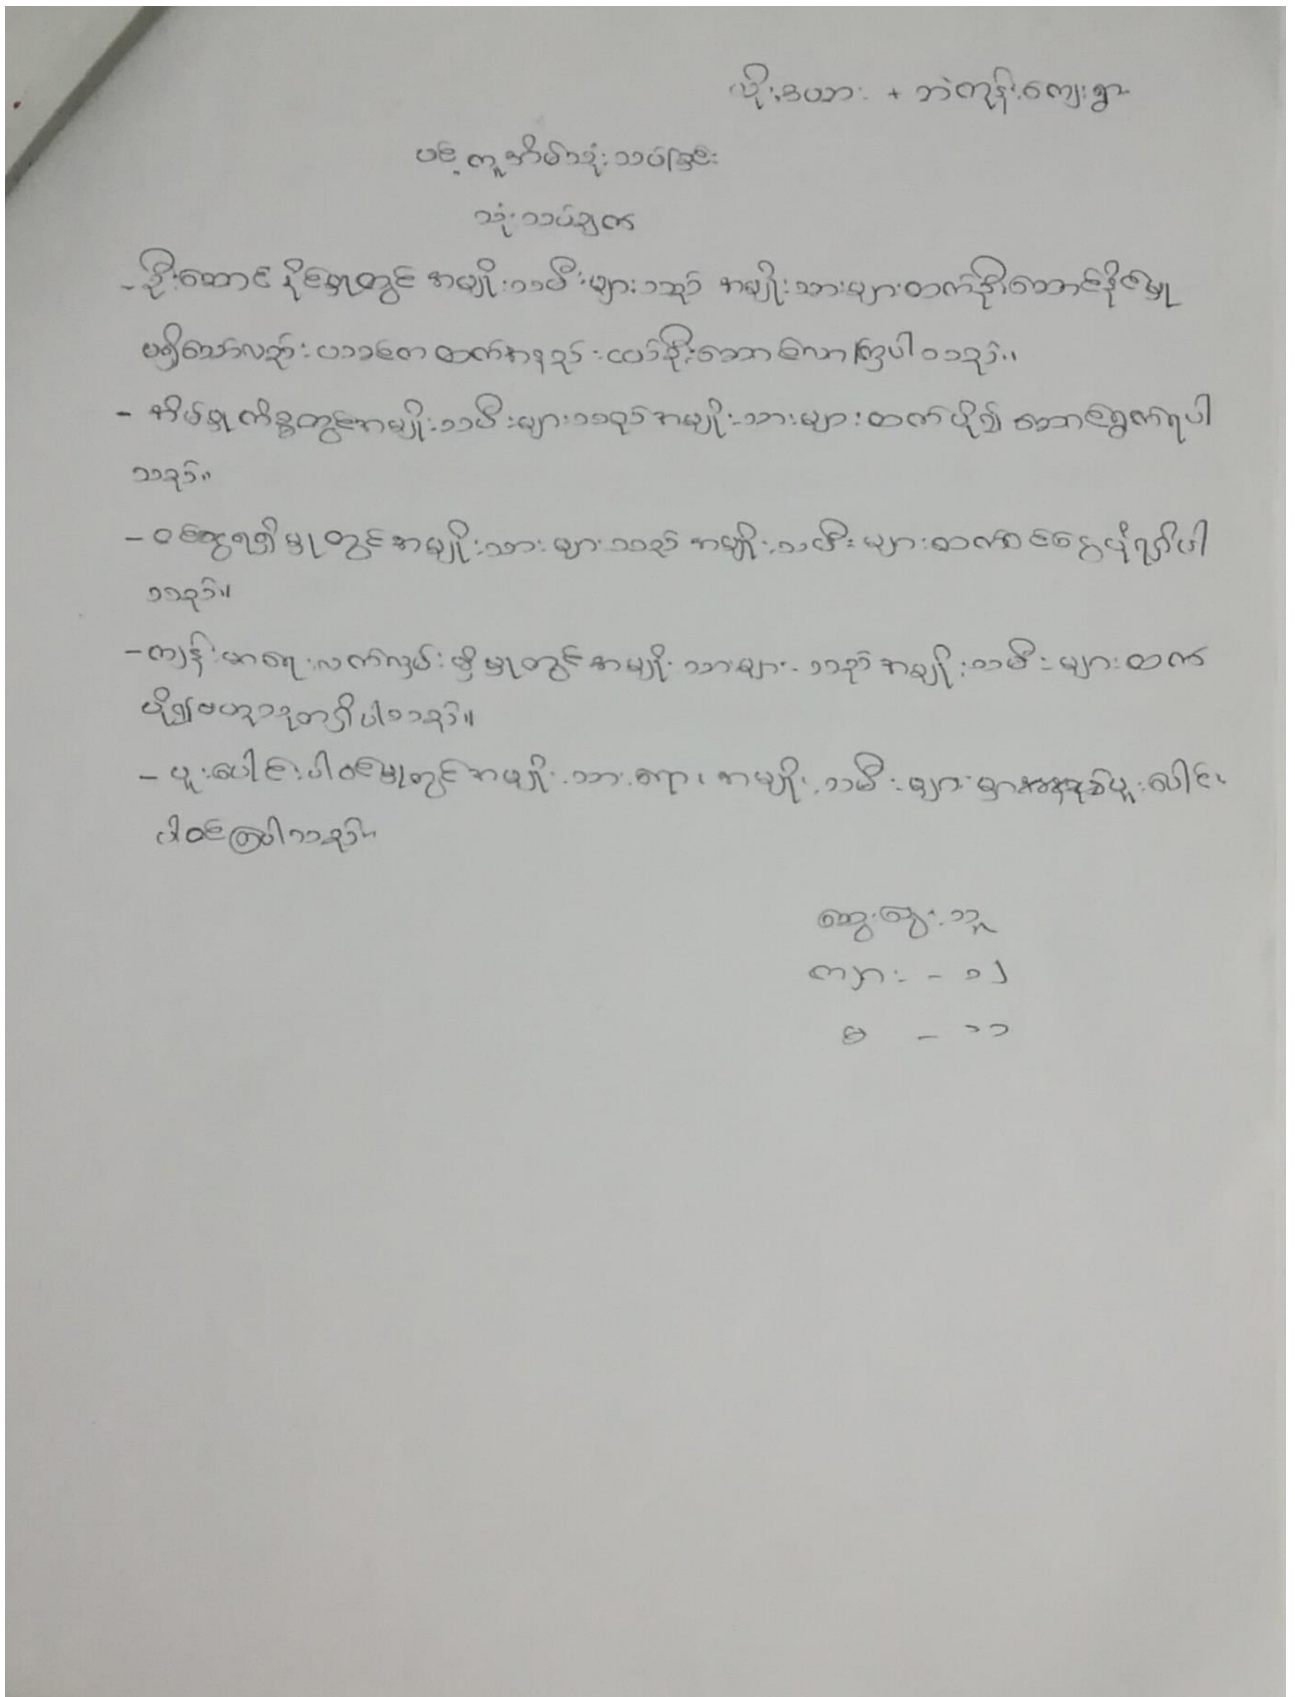 ယိုးဒယား + ဘဲကုန်းကျေးရွာ
ပင့်ကူအိမ်သုံးသပ်ခြင်း
သုံးသပ်ချက်
- ဦးဆောင်နိုင်မှုတွင် အမျိုးသမီးများသည် အမျိုးသားများထက်ဦးဆောင်နိုင်မှု
မရှိသော်လည်း ယခင်ကထက်အနည်းငယ်ဦးဆောင်လာကြပါသည်။
- အိမ်မှုကိစ္စတွင်အမျိုးသမီးများသည်အမျိုးသားများထက်ပို၍ ဆောင်ရွက်ရပါ
သည်။
- ဝင်ငွေရရှိမှုတွင်အမျိုးသားများသည် အမျိုးသမီးများထက်ဝင်ငွေပိုရရှိပါ
သည်။
- ကျန်းမာရေးလက်လှမ်းမှီမှုတွင်အမျိုးသားများသည်အမျိုးသမီးများထက်
ပို၍ဗဟုသုတရှိပါသည်။
- ပူးပေါင်းပါဝင်မှုတွင်အမျိုးသားရော၊ အမျိုးသမီးများမှာ ပူးပေါင်း
ပါဝင်ကြပါသည်။
ဆွေးနွေးသူ
ကျား - ၁၂
မ - ၁၁